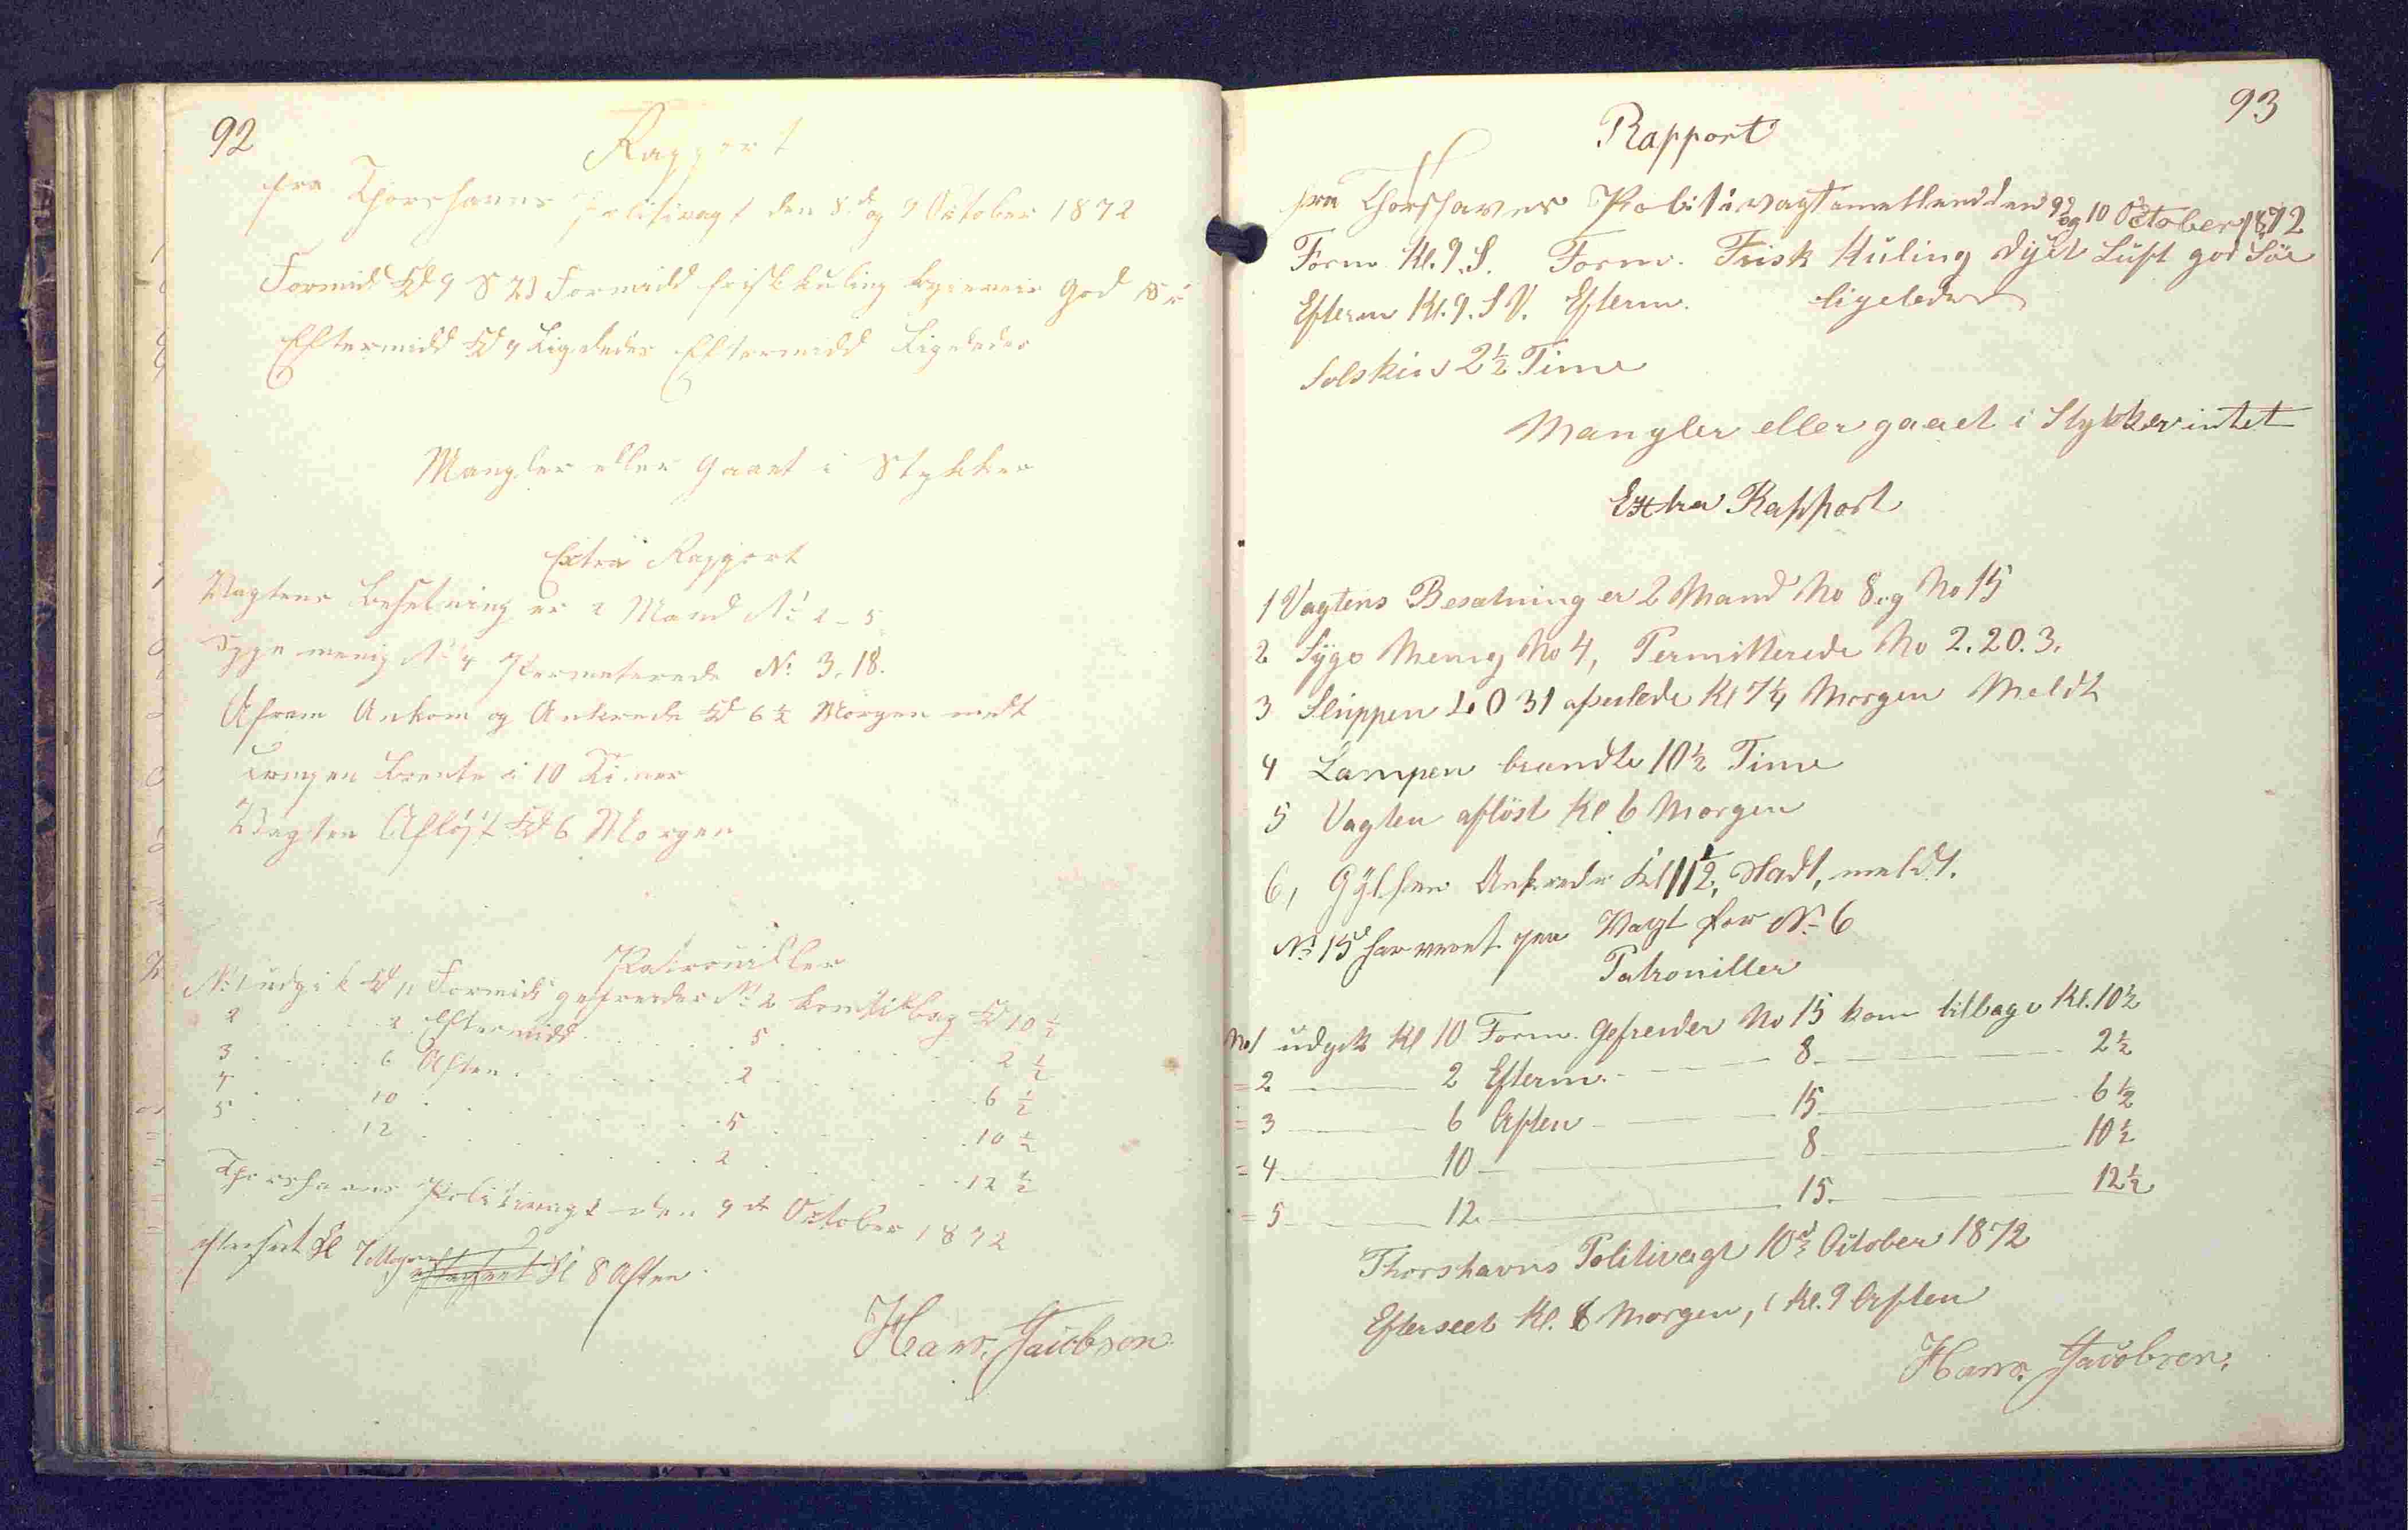 92
Rapport
fra Thorshavns Politivagt den 8de og 9 October 1872
Formidd Kl 9 S V Formidd frisk kuling God Sö
Eftermidd Kl 9 Ligeledes Eftermidd Ligeledes
Mangler eller Gaaet i Stykker
Extra Rapport
Vagtens Besetning er 2 Mand No 2 - 5
Syge menig No 4 Permeterede No 3. 18.
Ankom og Ankrede Kl 6½ Morgen medt
Lampen brente i 10 Timer
Vagten Aflöst Kl 6 Morgen
Patrouiller
No 1 udgik Kl Formidd gefreider No 2 kom tilbag Kl 10½
2 . . . 2 Eftermidd . . . 5 . . . 2½
3 . . . 6 Aften . . . 2 . . . 6½
4 . . . 10 . . . 5 . . . 10½
5 . . . 12 . . . 2 . . . 12½
Thorshavns Politivagt den 9de October 1872
efterseet Kl 7 Morg efterseet Kl 8 Aften
Hans. Jacobsen
93
Rapport
fra Thorshavns Politivagt emellem den 9de og 10 October 1872
Form Kl. 9. S. Form. Frisk Kuling Luft god Söe
Efterm Kl. 9. S V. Efterm. ligeledes
Solskin 2½ Time
Mangler eller gaaet i Stykker intet
Extra Rapport
1 Vagtens Besætning er 2 Mand No 8 og No 15
2 Syge Menig No 4, Permitterede No 2. 20. 3.
3 Sluppen L O 31 afseilede Kl 7¼ Morgen Meldt
4 Lampen brændte 10½ Time
5 Vagten aflöst Kl 6 Morgen
6, Ankrede Kl 11½, meldt.
No 15 har været paa Vagt for No 6
Patrouiller
No 1 udgik Kl 10 Form. Gefreider No 15 kom tilbage Kl. 10½
= 2 — 2 Efterm. — 8 — 2½
= 3 — 6 Aften — 15 — 6½
= 4 — 10 — 8 — 10½
= 5 — 12 — 15 — 12½
Thorshavns Politivagt 10de October 1872
Efterseet Kl. Morgen, Kl. 9 Aften
Hans. Jacobsen.